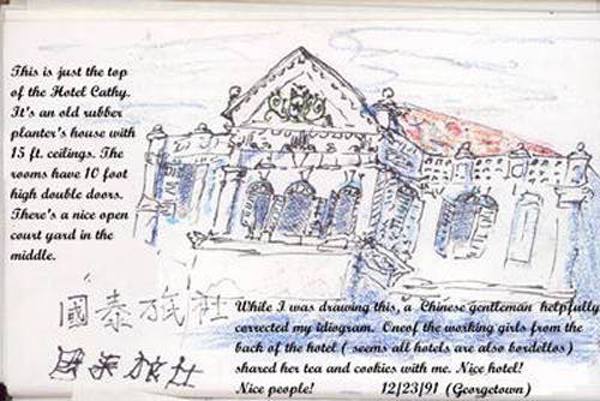 This is just the top
of the Hotel Cathy.
It's an old rubber
planter's house with
15 ft. ceilings. The
rooms have 10 foot
high double doors.
There's a nice open
court yard in the
middle.
國泰旅社
國泰旅社
While I was drawing this, a Chinese gentleman helpfully
corrected my idiogram. Oneof the working girls from the
back of the hotel ( seems all hotels are also bordellos)
shared her tea and cookies with me. Nice hotel!
Nice people! 12/23/91 (Georgetown)